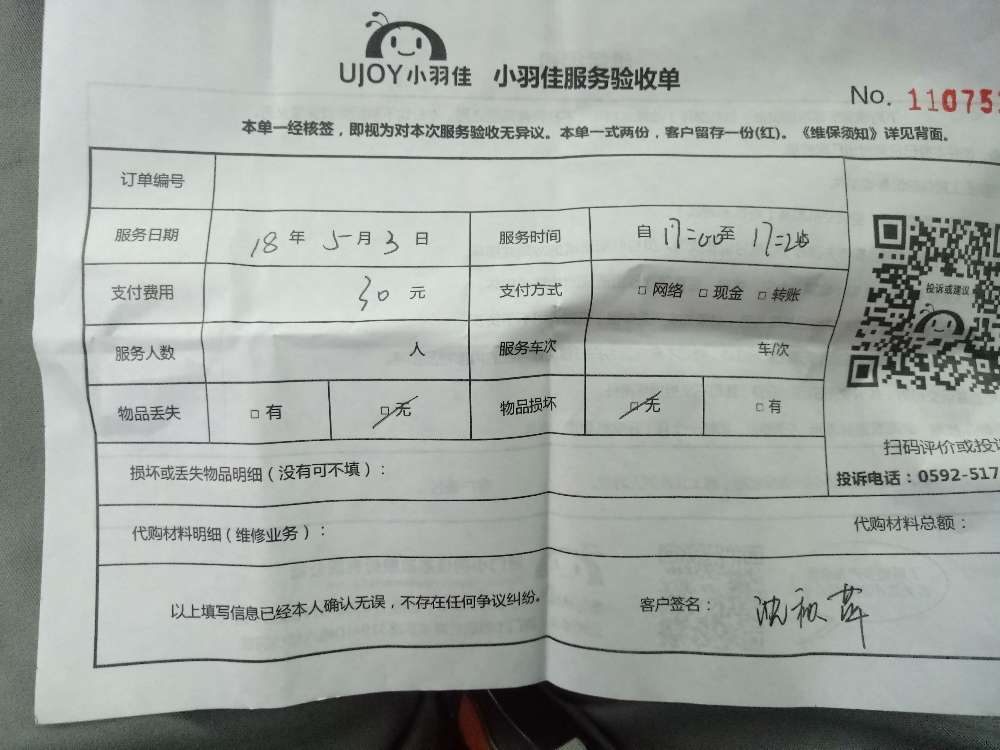 UJOY小羽佳 小羽佳服务验收单
No. 11075
本单一经核签，即视为对本次服务验收无异议。本单一式两份，客户留存一份(红)。《维保须知》详见背面。
订单编号
服务日期 18 年 5 月 3 日 服务时间 自 17:00 至 17:25
投诉或建议
支付费用 30 元 支付方式 □ 网络 □ 现金 □ 转账
服务人数 人 服务车次 车/次
物品丢失 □ 有 □ 无 物品损坏 □ 无 □ 有
扫码评价或投
损坏或丢失物品明细（没有可不填）：
投诉电话：0592-517
代购材料明细（维修业务）： 代购材料总额：
以上填写信息已经本人确认无误，不存在任何争议纠纷。 客户签名：